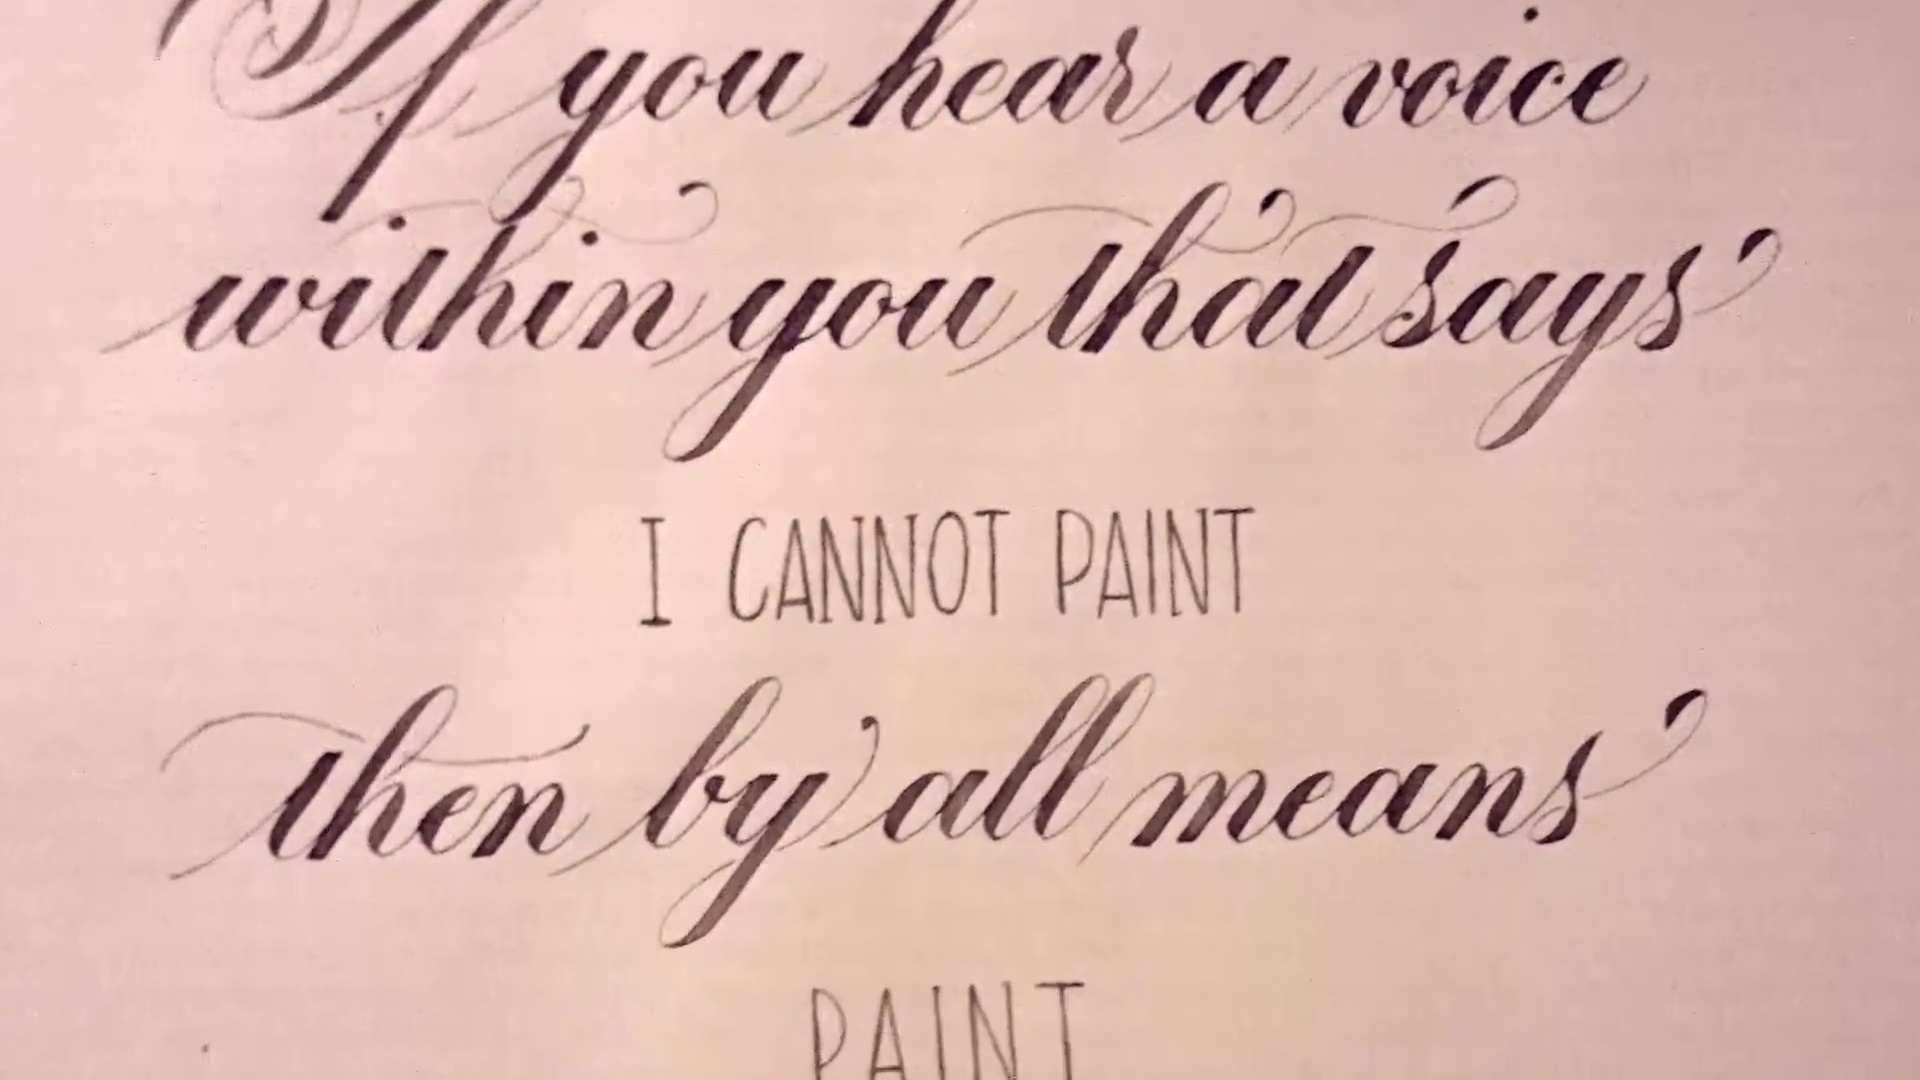 If you hear a voice
within you that says
I CANNOT PAINT
then by all means
PAINT